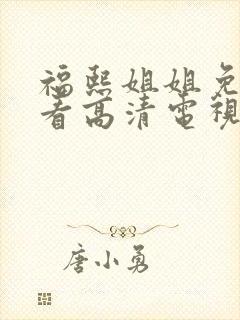 福熙姐姐免
看高清電視
唐小勇